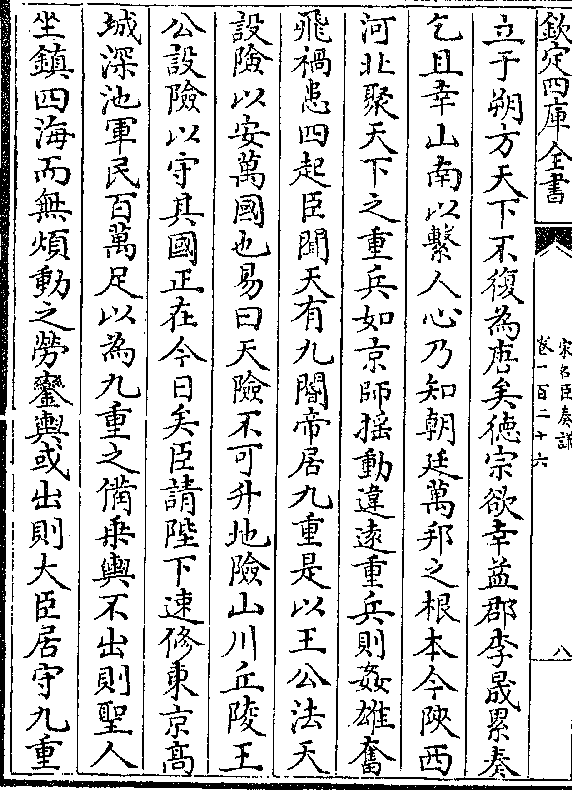 欽定四庫全書
宋名臣奏議
卷一百二十六
八
立于朔方天下不復為唐矣徳宗欲幸益郡李晟累奏
乞且幸山南以繫人心乃知朝廷萬邦之根本今陜西
河北聚天下之重兵如京師揺動違逺重兵則姦雄奮
飛禍患四起臣聞天有九閽帝居九重是以王公法天
設險以安萬國也易曰天險不可升地險山川丘陵王
公設險以守其國正在今日矣臣請陛下速修東京髙
城深池軍民百萬足以為九重之備乘輿不出則聖人
坐鎮四海而無煩動之勞鑾輿或出則大臣居守九重